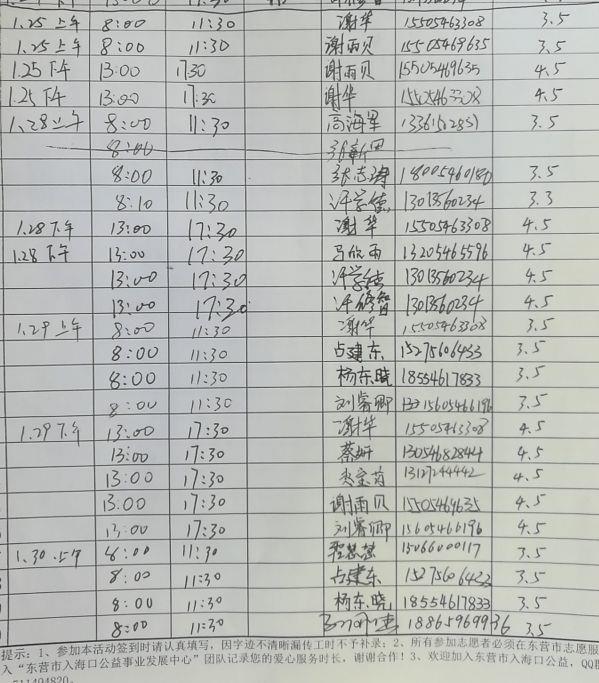 1.25上午 8:00 11:30 谢华 15505463308 3.5
1.25上午 8:00 11:30 谢雨贝 15505469635 3.5
1.25下午 13:00 17:30 谢雨贝 15505469635 4.5
1.25下午 13:00 17:30 谢华 15505463308 4.5
1.28上午 8:00 11:30 高海军 3.5
8:00
8:00 11:30 张志涛 18005460180 3.5
8:10 11:30 许学德 13013560234 3.3
1.28下午 13:00 17:30 谢华 15505463308 4.5
1.28下午 13:00 17:30 马欣雨 13205465596 4.5
13:00 17:30 许学德 13013560234 4.5
13:00 17:30 许修智 13013560234 4.5
1.29上午 8:00 11:30 谢华 15505463308 3.5
8:00 11:30 占建东 15275606433 3.5
8:00 11:30 杨东晓 18554617833 3.5
8:00 11:30 刘睿卿 15605466196 3.5
1.29下午 13:00 17:30 谢华 15505463308 4.5
13:00 17:30 蔡妍 13054682844 4.5
13:00 17:30 13127244442 4.5
13:00 17:30 谢雨贝 15505469635 4.5
13:00 17:30 刘睿卿 15605466196 4.5
1.30上午 8:00 11:30 15066000117 3.5
8:00 11:30 占建东 15275606433 3.5
8:00 11:30 杨东晓 18554617833 3.5
8:00 11:30 18865969936 3.5
提示：1、参加本活动签到时请认真填写，因字迹不清晰漏传工时不予补录；2、所有参加志愿者必须在东营市志愿服
入“东营市入海口公益事业发展中心”团队记录您的爱心服务时长，谢谢合作！3、欢迎加入东营市入海口公益，QQ群
711404820.